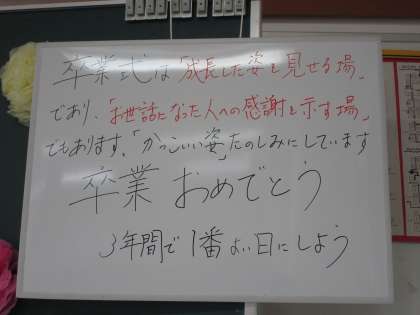 卒業式は「成長した姿を見せる場」
であり、「お世話になった人への感謝を示す場」
でもあります。「かっこいい姿」たのしみにしています
卒業おめでとう
3年間で1番よい日にしよう